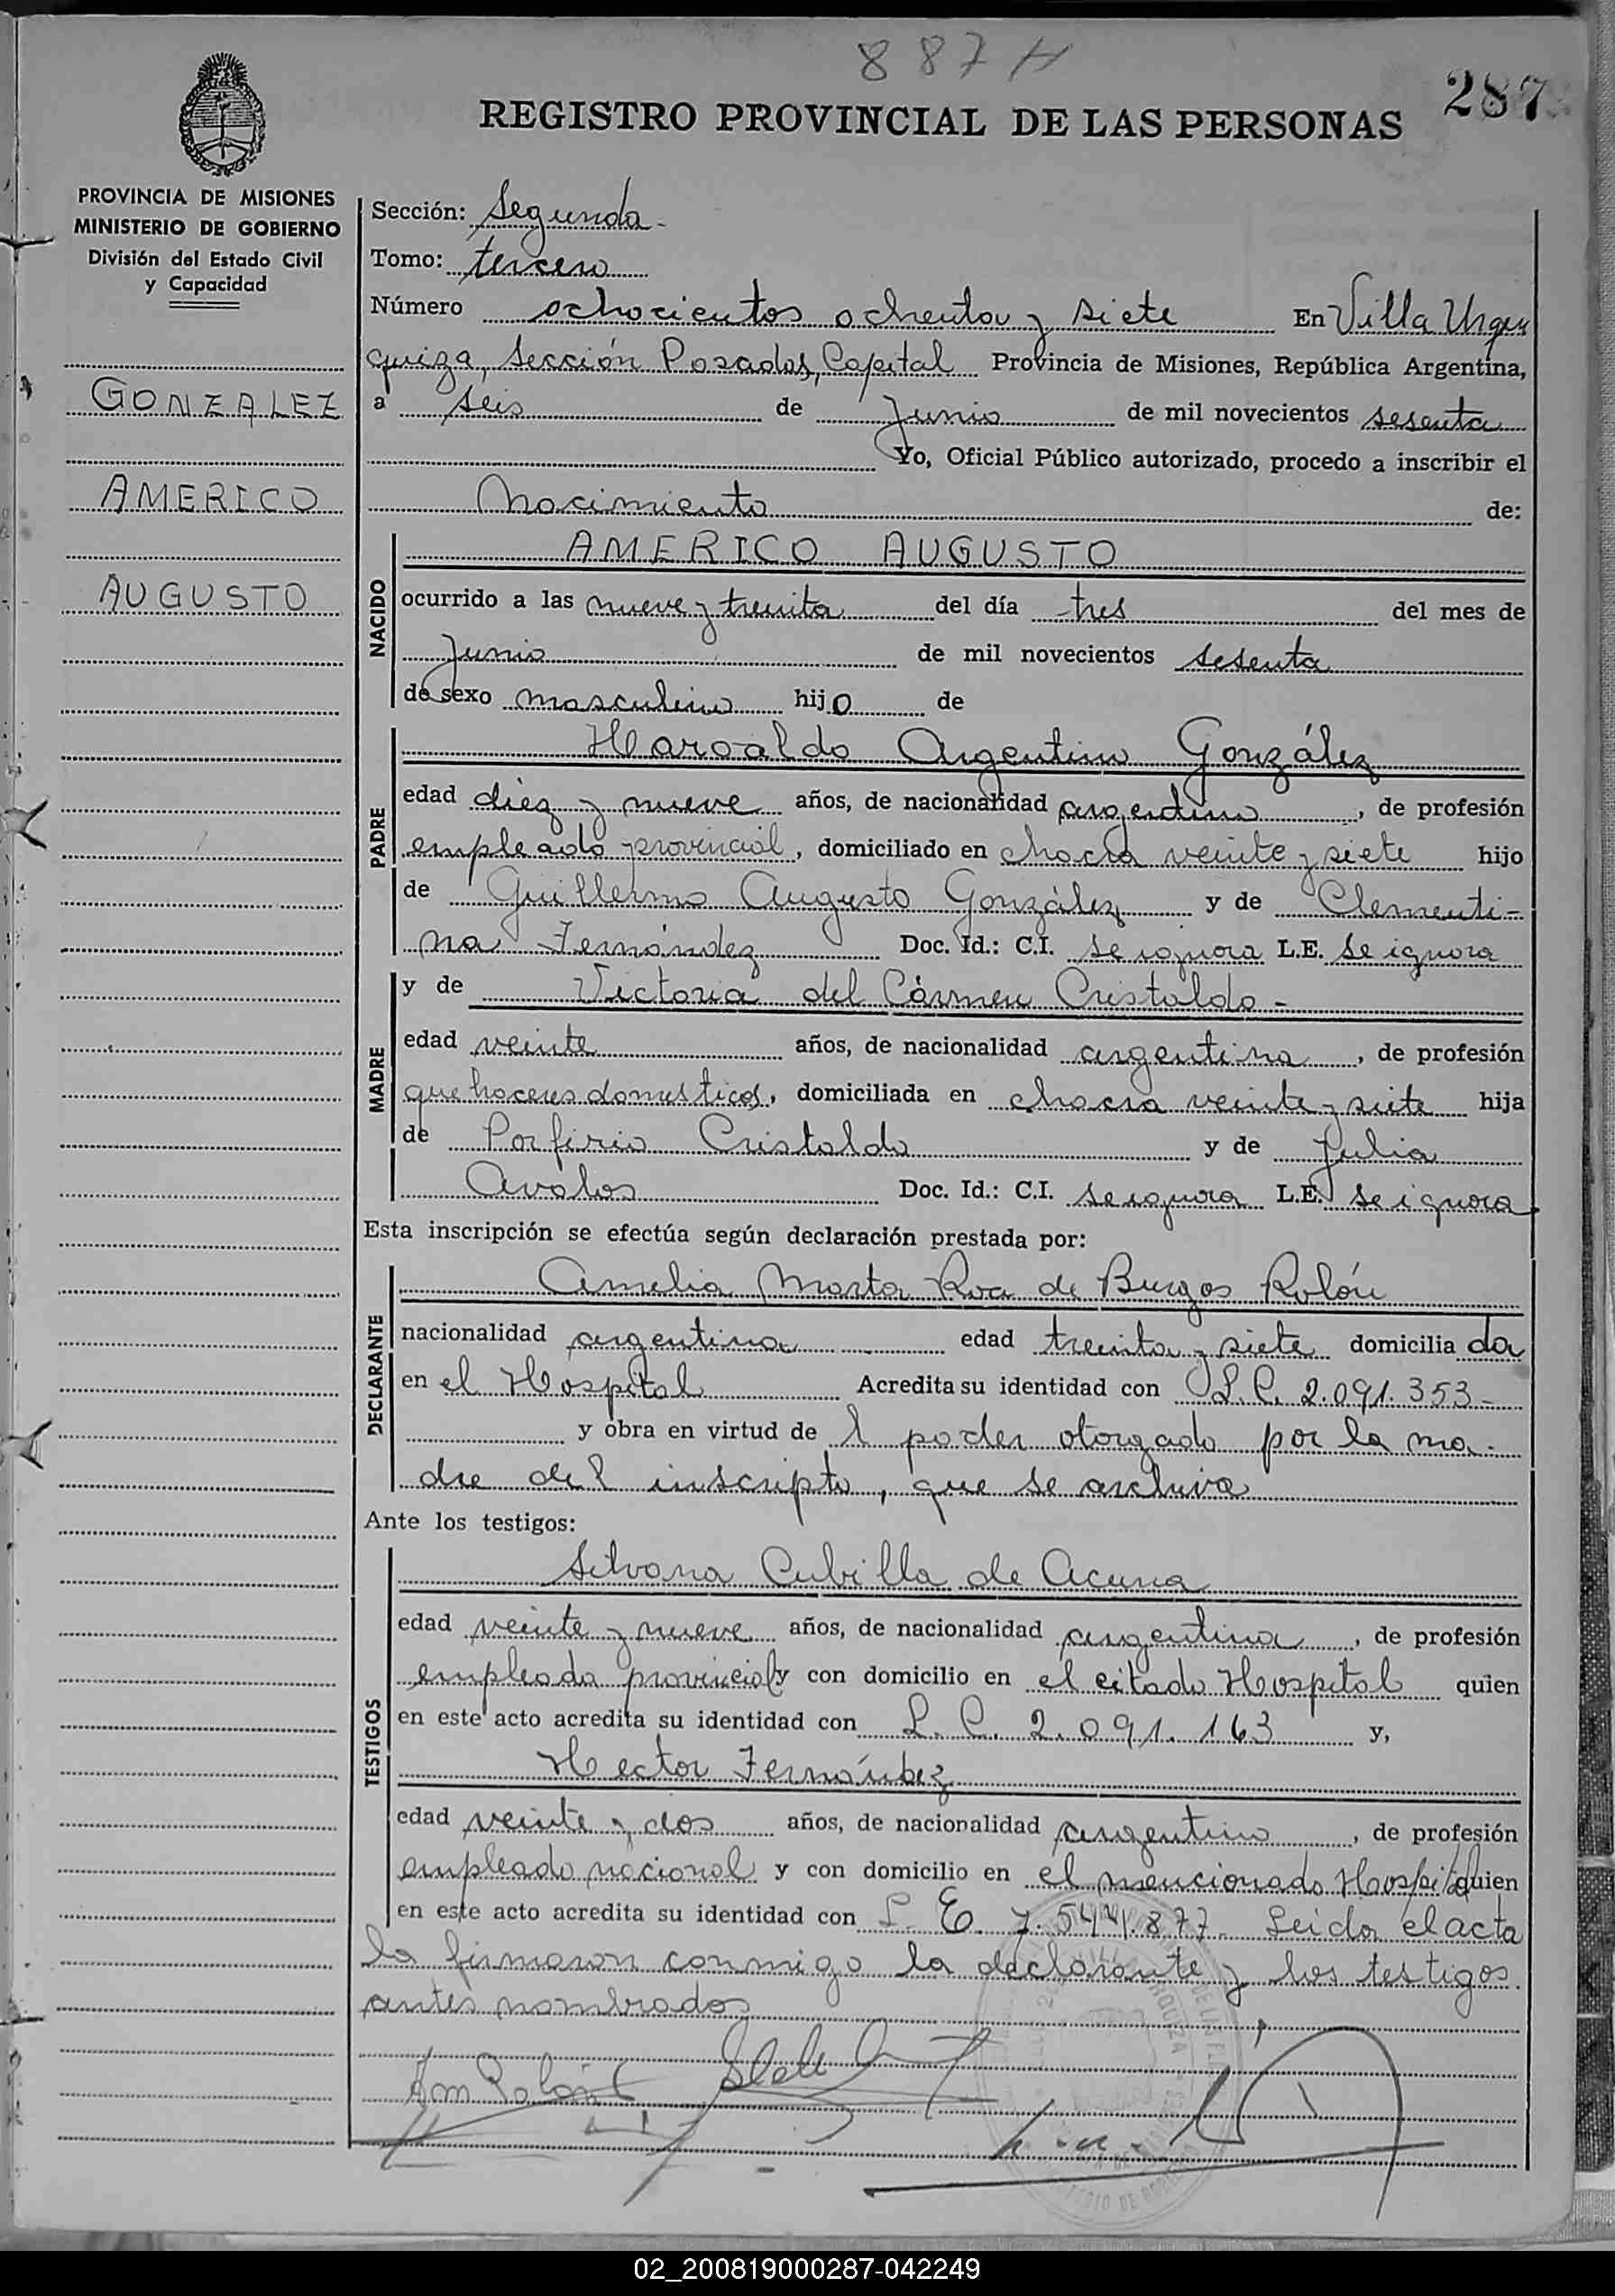 887 H
287
REGISTRO PROVINCIAL DE LAS PERSONAS
PROVINCIA DE MISIONES
MINISTERIO DE GOBIERNO
División del Estado Civil
y Capacidad
GONZALEZ
AMERICO
AUGUSTO
Sección: Segunda
Tomo: tercero
Número ochocientos ochenta y siete En Villa Urquiza
quiza, Sección Posadas, Capital Provincia de Misiones, República Argentina,
a seis de Junio de mil novecientos sesenta
Yo, Oficial Público autorizado, procedo a inscribir el
Nacimiento de:
NACIDO
AMERICO AUGUSTO
ocurrido a las nueve y treinta del día tres del mes de
Junio de mil novecientos sesenta
de sexo masculino hijo de
PADRE
Haroaldo Argentino González
edad diez y nueve años, de nacionalidad argentino, de profesión
empleado provincial, domiciliado en chacra veinte y siete hijo
de Guillermo Augusto González y de Clementi-
na Fernández Doc. Id.: C.I. se ignora L.E. se ignora
MADRE
y de Victoria del Cármen Cristaldo -
edad veinte años, de nacionalidad argentina, de profesión
quehaceres domesticos, domiciliada en chacra veinte y siete hija
de Porfirio Cristaldo y de Julia
Avalos Doc. Id.: C.I. se ignora L.E. se ignora
Esta inscripción se efectúa según declaración prestada por:
DECLARANTE
Amelia Marta Roa de Burgos Rolón
nacionalidad argentina edad treinta y siete domicilia da
en el Hospital Acredita su identidad con L.C. 2.091.353-
y obra en virtud de l poder otorgado por la ma-
dre del inscripto, que se archiva
Ante los testigos:
TESTIGOS
Silvana Cubilla de Acuna
edad veinte y nueve años, de nacionalidad argentina, de profesión
empleada provincial y con domicilio en el citado Hospital quien
en este acto acredita su identidad con L.C. 2.091.163 y,
Hector Fernández
edad veinte y dos años, de nacionalidad argentino, de profesión
empleado nacional y con domicilio en el mencionado Hospital quien
en este acto acredita su identidad con L.E. 7.544.877- Leida el acta
la firmaron conmigo la declarante y los testigos
antes nombrados
02_200819000287-042249